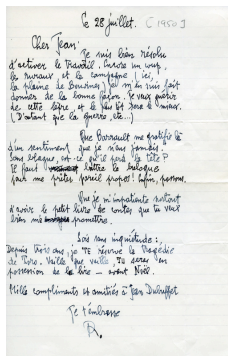 Ce 28 juillet. [1950]
Cher Jean,
Je suis bien résolu
d'activer le travail. Encore un coup,
les mureaux et la campagne (ici,
la plaine de
donner de la bonne façon. Je veux
de cette ère et le plus tôt sera le mieux.
(D'autant que la guerre, etc...)
Que Barrault me gratifie là
d'un sentiment que je n'eus jamais.
Sans blague, est-ce qu'il perd la tête ?
Il faut battre la
pour me prêter pareil propos ! Enfin, passons.
Que je m'impatiente surtout
d'avoir le petit livre de contes que tu veux
bien me promettre.
Sois sans inquiétude :
Depuis trois ans, je TE réserve la Tragédie
de Vaille que vaille, TU seras en
possession de la — avant Noël.
Mille compliments et amitiés à Jean Dubuffet
Je t'embrasse